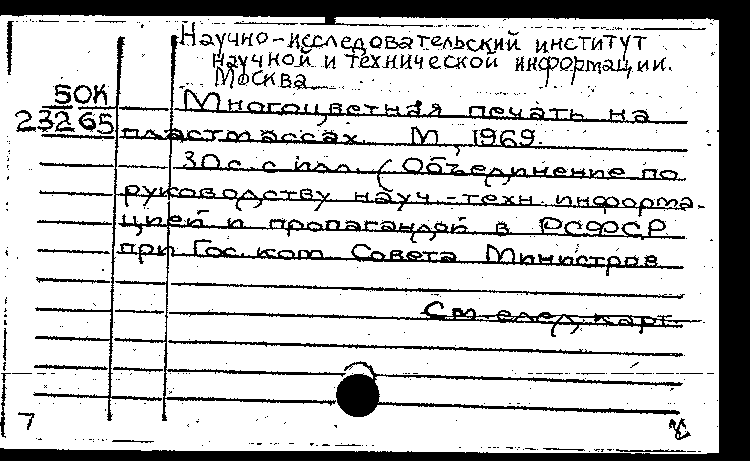 Научно-исследовательский институт
научной и технической информации.
Москва
50К
Многоцветная печать на
23265
пластмассах. М, 1969.
30с. с илл. (Объединение по
руководству науч.-техн. информа-
цией и пропагандой в РСФСР
при Гос. ком. Совета Министров
См. след. карт.
7